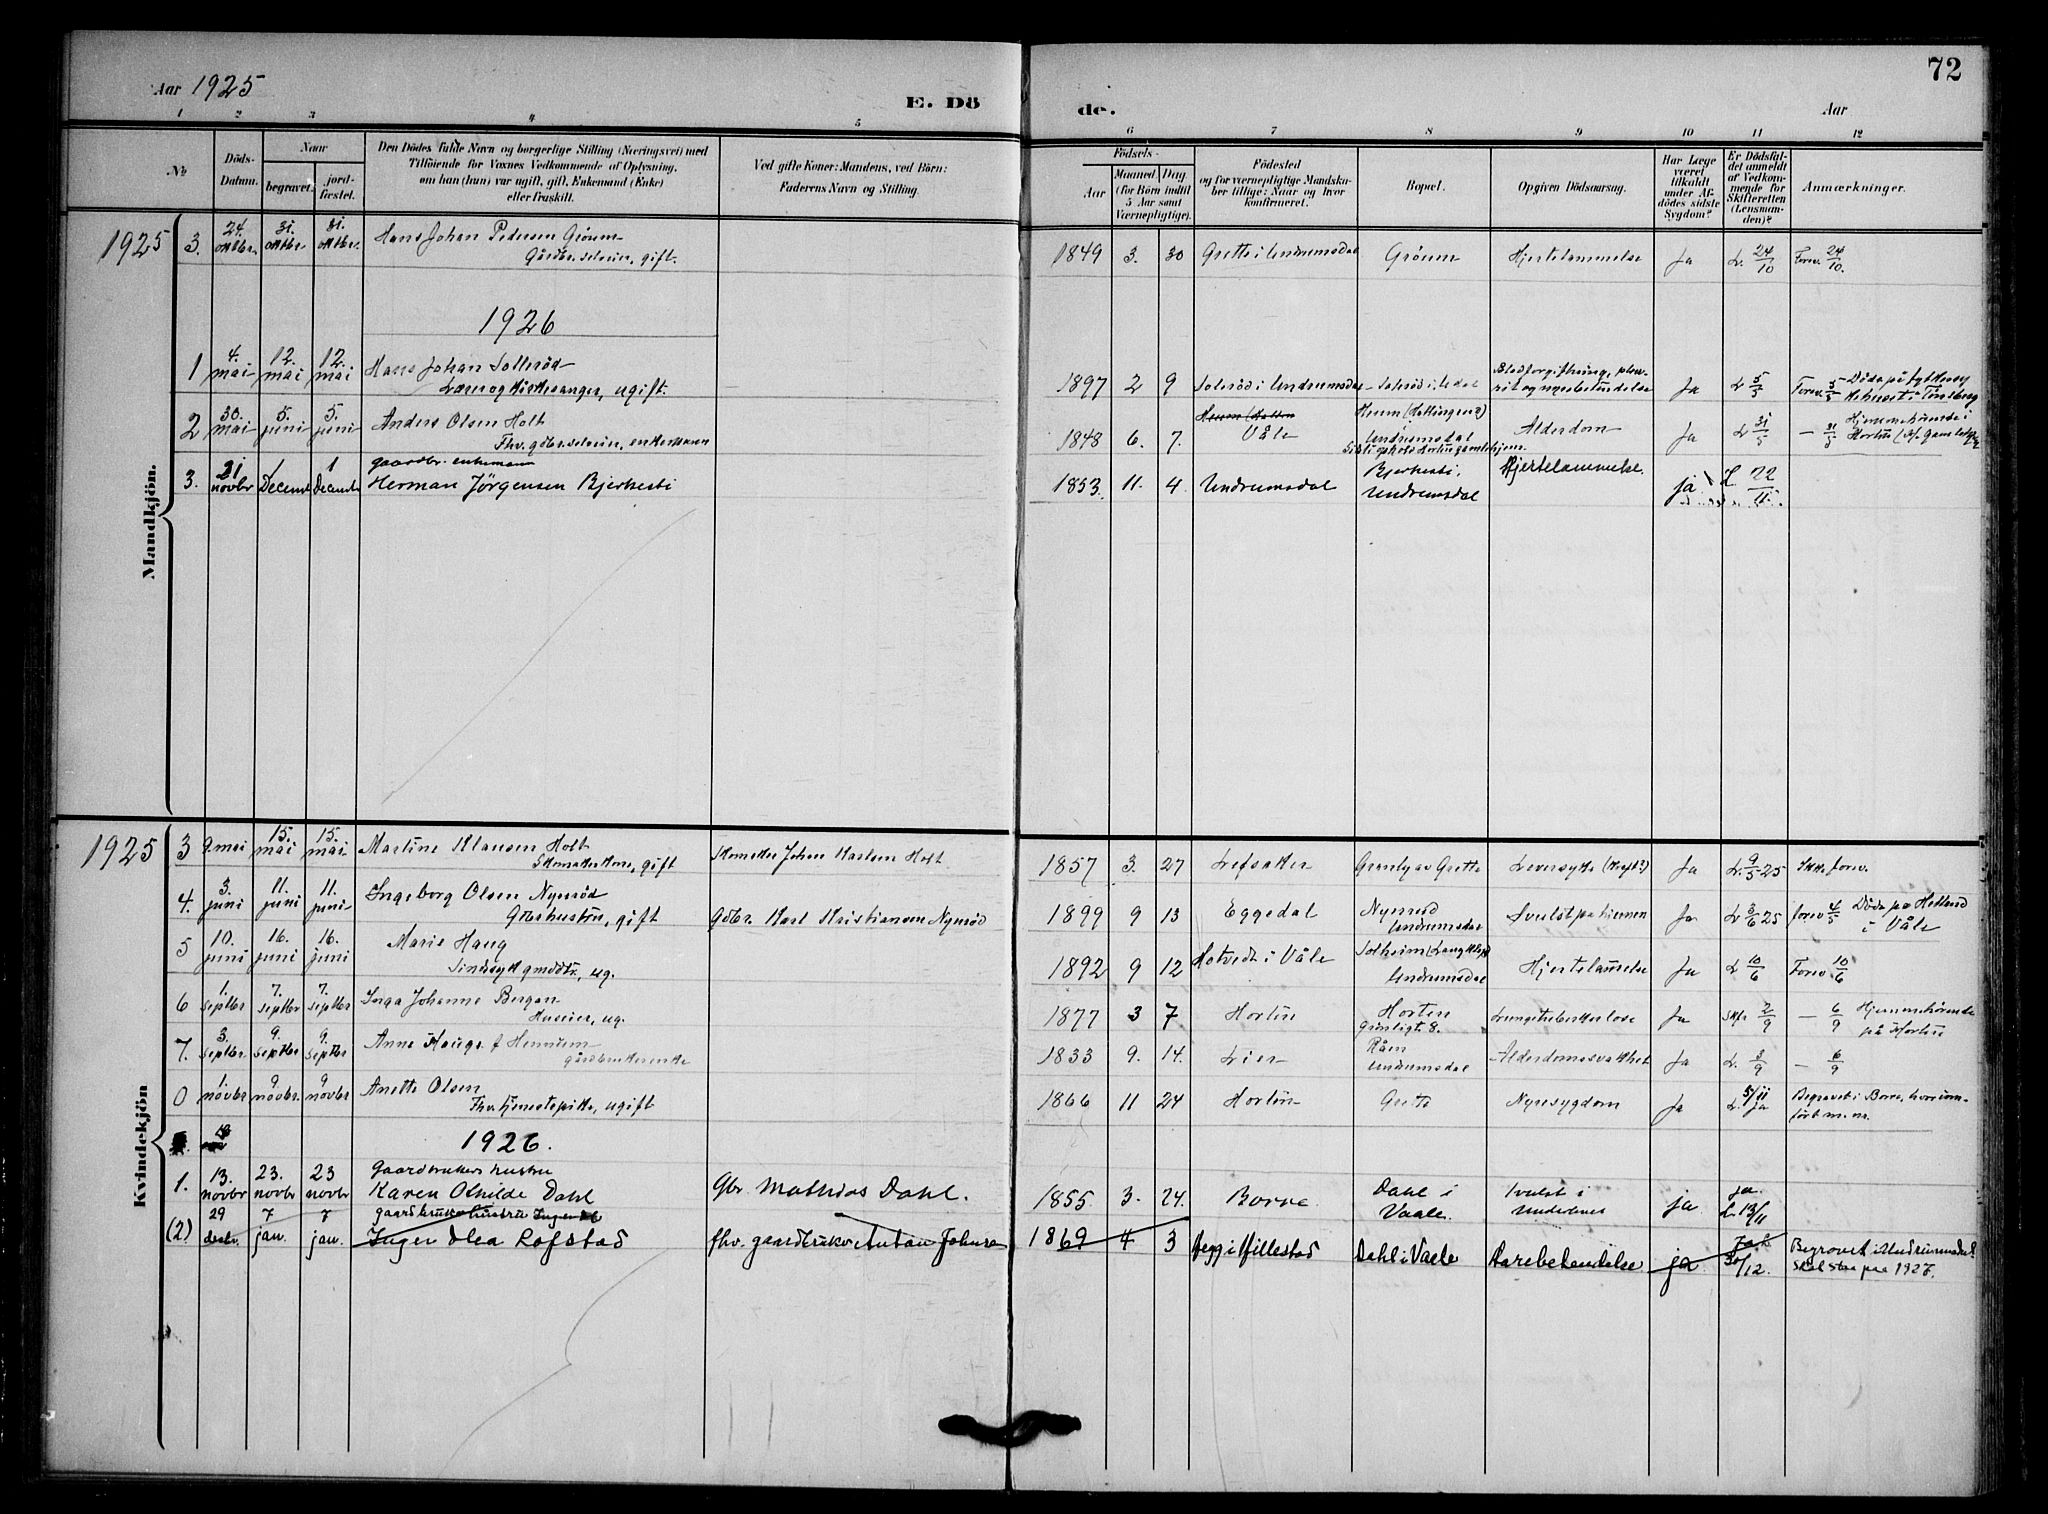 Aar 1925
E. Dö
de.
Aar
72
1 2 3 4 5 6 7 8 9 10 11 12
No
Döds-
Datum.
Naar
begravet.
jord-
fæstet.
Den Dödes fulde Navn og borgerlige Stilling (Næringsvei) med
Tilföiende for Voxnes Vedkommende af Oplysning,
om han (hun) var ugift, gift, Enkemand (Enke)
eller fraskilt.
Ved gifte Koner: Mandens, ved Börn:
Faderens Navn og Stilling.
Födsels-
Aar
Maaned Dag
(for Börn indtil
5 Aar samt
Værnepligtige).
Födested
og for værnepligtige Mandska-
ber tillige: Naar og hvor
konfirmeret.
Bopæl.
Opgiven Dödsaarsag.
Har Læge
været
tilkaldt
under Af-
dödes sidste
Sygdom?
Er Dödsfal-
det anmeldt
af Vedkom-
mende for
Skifteretten
(Lensman-
den)?
Anmærkninger.
Mandkjön.
1925 3. 24. oktbr. 31. oktbr. 31. oktbr. Hans Johan Pedersen Gröum
Gårdbr. selveier, gift.
1849 3. 30 Grette i Undrumsdal Gröum Hjertelammelse Ja L. 24/10 Forev. 24/10.
1926
1 4. mai 12. mai 12. mai Hans Johan Solleröd
Lærer og kirkesanger, ugift.
1897 2 9 Soleröd i Undrumsdal Soleröd i U.dal Blodforgiftning,
rit og nyrebetændelse Ja L 5/5 Forev. 5/5 Döde på
i Tönsberg
2 30. mai 5. juni 5. juni Anders Olsen Holt
Fhv. gdbr. selveier, enkemann
1848 6. 7. Våle Heum
Undrumsdal
Alderdom Ja L 31/5 — 31/5 Hjemmehörende i
Horten
3. 21 novbr 1 Decembr 1 Decembr gaardbr. enkemann
Herman Jörgensen Bjerkesti
1853. 11. 4. Undrumsdal Bjerkesti,
Undrumsdal
Hjertelammelse. ja L 22/11.
Kvindekjön
1925 3 9. mai 15. mai 15. mai Martine Klausen Holt
Skomakerkone, gift Skomaker Johan Karlsen Holt
1857 3. 27 Lefsaker Granly av Grette Leversyke (Kreft?) Ja L. 9/5 25 Ikke forev.
4. 3. juni 11. juni 11. juni Ingeborg Olsen Nyeröd
Gdbrhustru, gift Gdbr. Karl Kristiansen Nyeröd
1899 9 13 Eggedal Nyeröd
Undrumsdal
Svulst på hjernen Ja L 3/6 25 forev. 4/5 Döde på
i Våle
5 10. juni 16. juni 16. juni Marie Haug
Sindssyk ug.
1892 9 12 Hotvedt i Våle Solheim
Undrumsdal
Hjertelammelse Ja L 10/6 Forev 10/6
6 1. septbr 7. septbr 7. septbr Inga Johanne Bergan
Huseier, ug.
1877 3 7 Horten Horten
Grönligt. 8.
Lungetuberkulose Ja Skfr 2/9 — 6/9 Hjemmehörende
på Horten
7. 3. septbr. 9. septbr 9. septbr Anne Hauge f Hennum
gårdbrukerenke
1833 9. 14. Lier Råen
Undrumsdal
Alderdomssvakhet Ja L. 3/9 — 6/9
0 1. novbr 9. novbr. 9 novbr Anette Olsen
Fhv. tjenestepike, ugift
1866 11 24 Horten Grette Nyresygdom Ja L. 5/11 Ja Begravet i Borre, hvor inn-
fört m. nr.
1926.
1. 13. novbr 23. novbr 23 novbr Gaardbrukers hustru
Karen Othilde Dahl Gbr Mathias Dahl.
1855 3. 24. Borre Dahl i
Vaale.
Svulst i
Underlivet
ja ja L. 13/11
(2) 29 desbr. 7 jan. 7 jan. gaardbrukerhustru
Inger Olea Rofstad fhv. gaardbruker Antan Johnsen
1869 4 3 Hegg i Hillestad Dahl i Vaale Aarebetendelse ja. 30/12. Begravet i Undrumsdal.
Skal staa paa 1927.